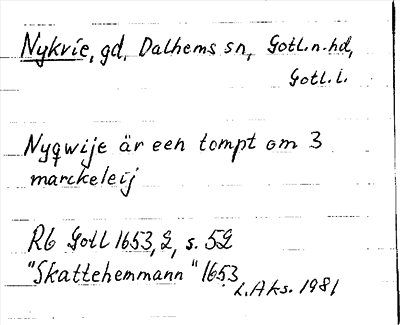 Nykvie, gd, Dalhems sn, Gotl.n.hd,
Gotl.l.
Nyqwije är een tompt om 3
marckeleij
Rb Gotl 1653, 2, s. 52
"Skattehemmann" 1653
L.Aks. 1981